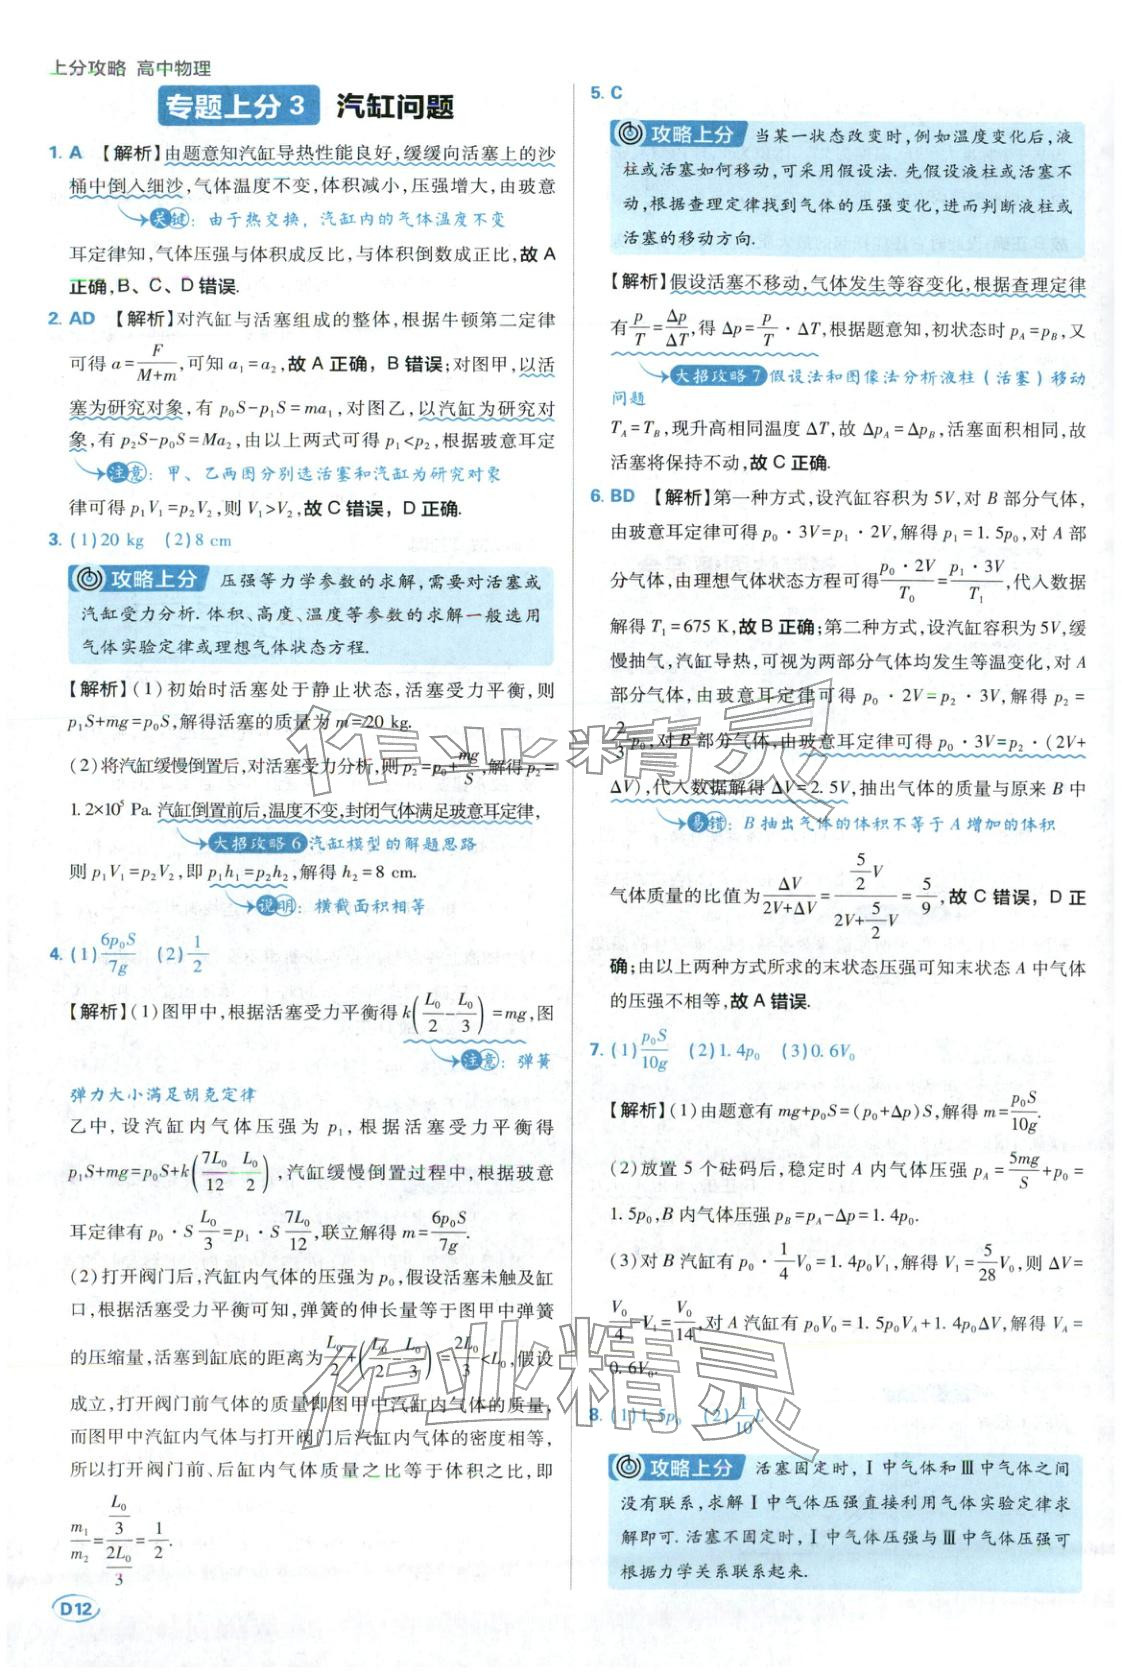 上分攻略 高中物理
专题上分 3 汽缸问题
1. A 【解析】由题意知汽缸导热性能良好,缓缓向活塞上的沙
桶中倒入细沙,气体温度不变,体积减小,压强增大,由玻意
关键:由于热交换,汽缸内的气体温度不变
耳定律知,气体压强与体积成反比,与体积倒数成正比,故 A
正确,B、C、D 错误.
2. AD 【解析】对汽缸与活塞组成的整体,根据牛顿第二定律
可得 a=F/(M+m),可知 a₁=a₂,故 A 正确,B 错误;对图甲,以活
塞为研究对象,有 p₀S-p₁S=ma₁,对图乙,以汽缸为研究对
象,有 p₂S-p₀S=Ma₂,由以上两式可得 p₁<p₂,根据玻意耳定
注意:甲、乙两图分别选活塞和汽缸为研究对象
律可得 p₁V₁=p₂V₂,则 V₁>V₂,故 C 错误,D 正确.
3. (1)20 kg (2)8 cm
攻略上分 压强等力学参数的求解,需要对活塞或
汽缸受力分析. 体积、高度、温度等参数的求解一般选用
气体实验定律或理想气体状态方程.
【解析】(1)初始时活塞处于静止状态,活塞受力平衡,则
p₁S+mg=p₀S,解得活塞的质量为 m=20 kg.
(2)将汽缸缓慢倒置后,对活塞受力分析,则 p₂=p₀+mg/S,解得 p₂=
1.2×10⁵ Pa. 汽缸倒置前后,温度不变,封闭气体满足玻意耳定律,
大招攻略 6 汽缸模型的解题思路
则 p₁V₁=p₂V₂,即 p₁h₁=p₂h₂,解得 h₂=8 cm.
说明:横截面积相等
4. (1)6p₀S/7g (2)1/2
【解析】(1)图甲中,根据活塞受力平衡得 k(L₀/2-L₀/3)=mg,图
注意:弹簧
弹力大小满足胡克定律
乙中,设汽缸内气体压强为 p₁,根据活塞受力平衡得
p₁S+mg=p₀S+k(7L₀/12-L₀/2),汽缸缓慢倒置过程中,根据玻意
耳定律有 p₀·S L₀/3=p₁·S 7L₀/12,联立解得 m=6p₀S/7g.
(2)打开阀门后,汽缸内气体的压强为 p₀,假设活塞未触及缸
口,根据活塞受力平衡可知,弹簧的伸长量等于图甲中弹簧
的压缩量,活塞到缸底的距离为 L₀/2+(L₀/2-L₀/3)=2L₀/3<L₀,假设
成立,打开阀门前气体的质量即图甲中汽缸内气体的质量,
而图甲中汽缸内气体与打开阀门后汽缸内气体的密度相等,
所以打开阀门前、后缸内气体质量之比等于体积之比,即
m₁/m₂=(L₀/3)/(2L₀/3)=1/2.
D12
5. C
攻略上分 当某一状态改变时,例如温度变化后,液
柱或活塞如何移动,可采用假设法. 先假设液柱或活塞不
动,根据查理定律找到气体的压强变化,进而判断液柱或
活塞的移动方向.
【解析】假设活塞不移动,气体发生等容变化,根据查理定律
有 p/T=Δp/ΔT,得 Δp=p/T·ΔT,根据题意知,初状态时 p_A=p_B,又
大招攻略 7 假设法和图像法分析液柱(活塞)移动
问题
T_A=T_B,现升高相同温度 ΔT,故 Δp_A=Δp_B,活塞面积相同,故
活塞将保持不动,故 C 正确.
6. BD 【解析】第一种方式,设汽缸容积为 5V,对 B 部分气体,
由玻意耳定律可得 p₀·3V=p₁·2V,解得 p₁=1.5p₀,对 A 部
分气体,由理想气体状态方程可得 p₀·2V/T₀=p₁·3V/T₁,代入数据
解得 T₁=675 K,故 B 正确;第二种方式,设汽缸容积为 5V,缓
慢抽气,汽缸导热,可视为两部分气体均发生等温变化,对 A
部分气体,由玻意耳定律可得 p₀·2V=p₂·3V,解得 p₂=
2/3 p₀,对 B 部分气体,由玻意耳定律可得 p₀·3V=p₂·(2V+
ΔV),代入数据解得 ΔV=2.5V,抽出气体的质量与原来 B 中
易错:B 抽出气体的体积不等于 A 增加的体积
气体质量的比值为 ΔV/(2V+ΔV)=(5/2 V)/(2V+5/2 V)=5/9,故 C 错误,D 正
确;由以上两种方式所求的末状态压强可知末状态 A 中气体
的压强不相等,故 A 错误.
7. (1)p₀S/10g (2)1.4p₀ (3)0.6V₀
【解析】(1)由题意有 mg+p₀S=(p₀+Δp)S,解得 m=p₀S/10g.
(2)放置 5 个砝码后,稳定时 A 内气体压强 p_A=5mg/S+p₀=
1.5p₀,B 内气体压强 p_B=p_A-Δp=1.4p₀.
(3)对 B 汽缸有 p₀·1/4 V₀=1.4p₀V₁,解得 V₁=5/28 V₀,则 ΔV=
V₀/4-V₁=V₀/14,对 A 汽缸有 p₀V₀=1.5p₀V_A+1.4p₀ΔV,解得 V_A=
0.6V₀.
8. (1)1.5p₀ (2)1/10 L
攻略上分 活塞固定时,Ⅰ中气体和Ⅲ中气体之间
没有联系,求解Ⅰ中气体压强直接利用气体实验定律求
解即可. 活塞不固定时,Ⅰ中气体压强与Ⅲ中气体压强可
根据力学关系联系起来.
作业精灵
作业精灵